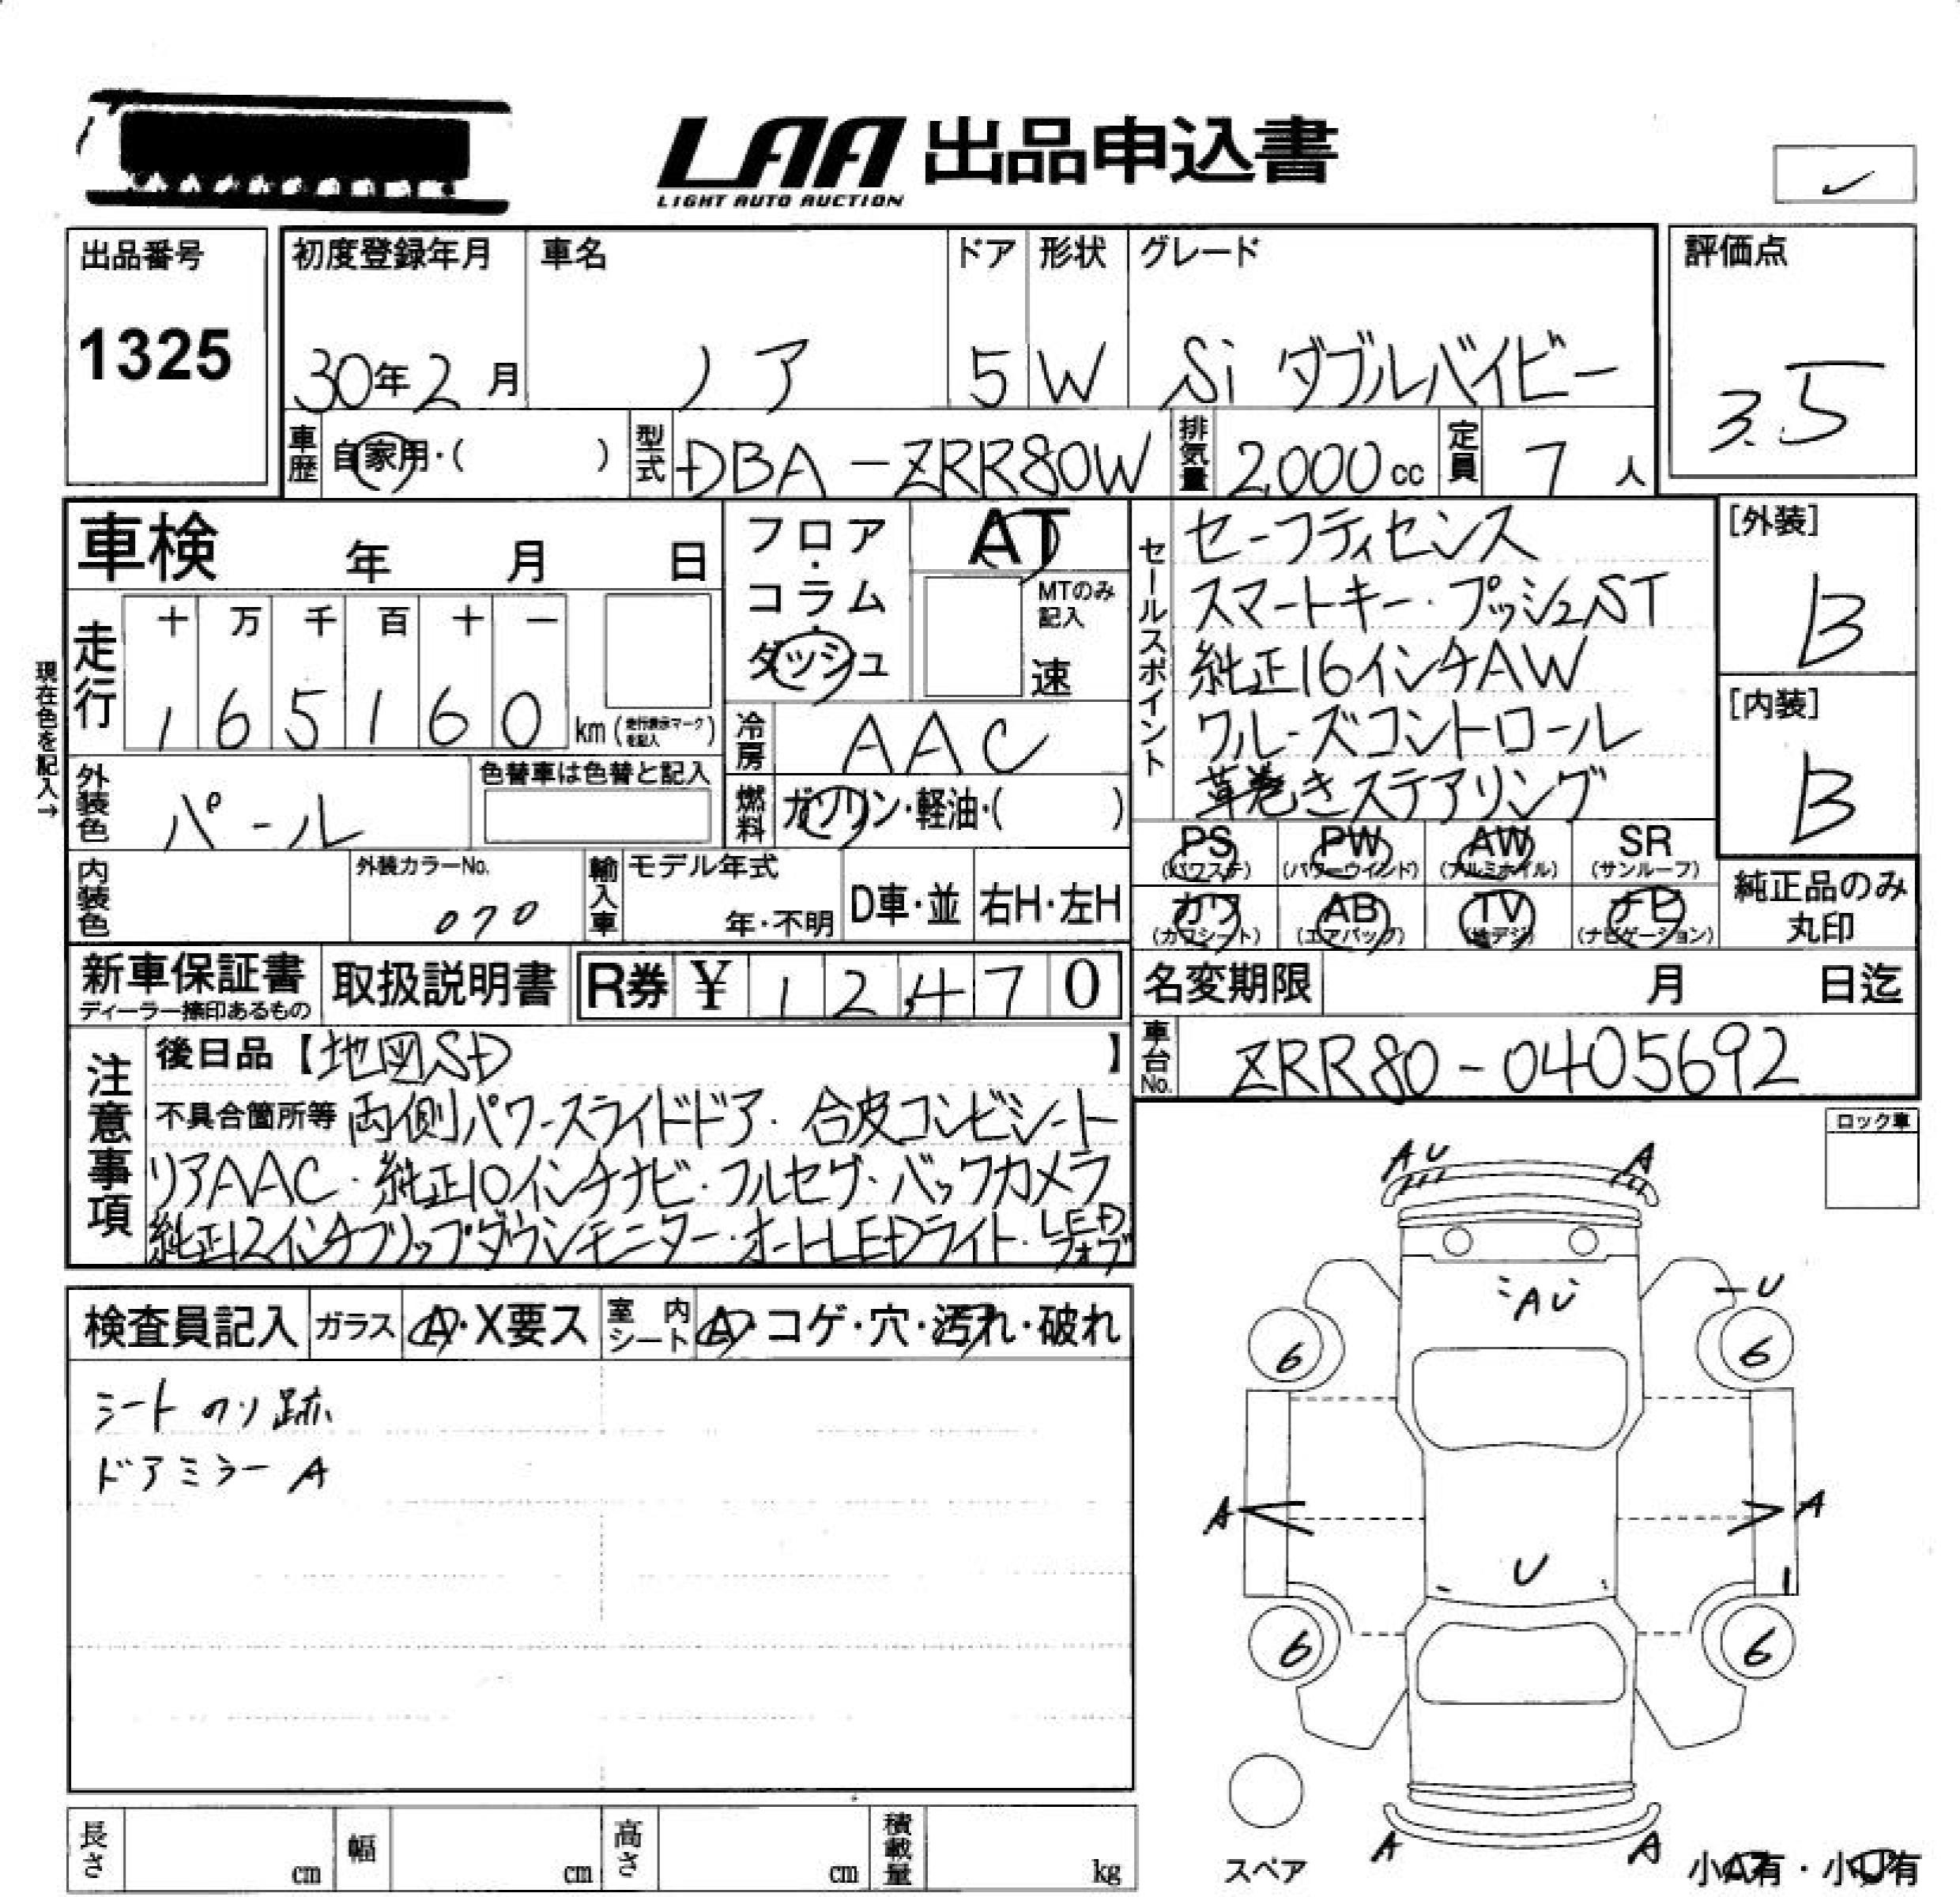 LAA 出品申込書
LIGHT AUTO AUCTION
出品番号
1325
初度登録年月
30年2月
車名
ノア
ドア
5
形状
W
グレード
Si ダブルバイビー
評価点
3.5
車歴
自家用・( )
型式
DBA-ZRR80W
排気量
2,000cc
定員
7人
車検 年 月 日
フロア・コラム・ダッシュ
AT
MTのみ記入
速
セールスポイント
セーフティセンス
スマートキー・プッシュST
純正16インチAW
クルーズコントロール
革巻きステアリング
[外装]
B
[内装]
B
現在色を記入→
走行
十 万 千 百 十 一
1 6 5 1 6 0 km (走行表示マークを記入)
冷房
AAC
外装色
パール
色替車は色替と記入
燃料
ガソリン・軽油・( )
PS (パワステ)
PW (パワーウインド)
AW (アルミホイル)
SR (サンルーフ)
カワ (カワシート)
AB (エアバッグ)
TV (地デジ)
ナビ (ナビゲーション)
純正品のみ丸印
内装色
外装カラーNo.
070
輸入車
モデル年式
年・不明
D車・並
右H・左H
新車保証書
ディーラー捺印あるもの
取扱説明書
R券 ¥ 12,470
名変期限 月 日迄
車台No.
ZRR80-0405692
注意事項
後日品【地図SD】
不具合箇所等 両側パワースライドドア・合皮コンビシート
リアAAC・純正10インチナビ・フルセグ・バックカメラ
純正12インチフリップダウンモニター・オートLEDライト・LEDフォグ
ロック車
検査員記入
ガラス
A・X要ス
室内シート
A・コゲ・穴・汚れ・破れ
シート のり跡
ドアミラー A
AU
A
AU
U
6
6
A
A
U
6
6
A
A
スペア
小A有・小U有
長さ cm
幅 cm
高さ cm
積載量 kg